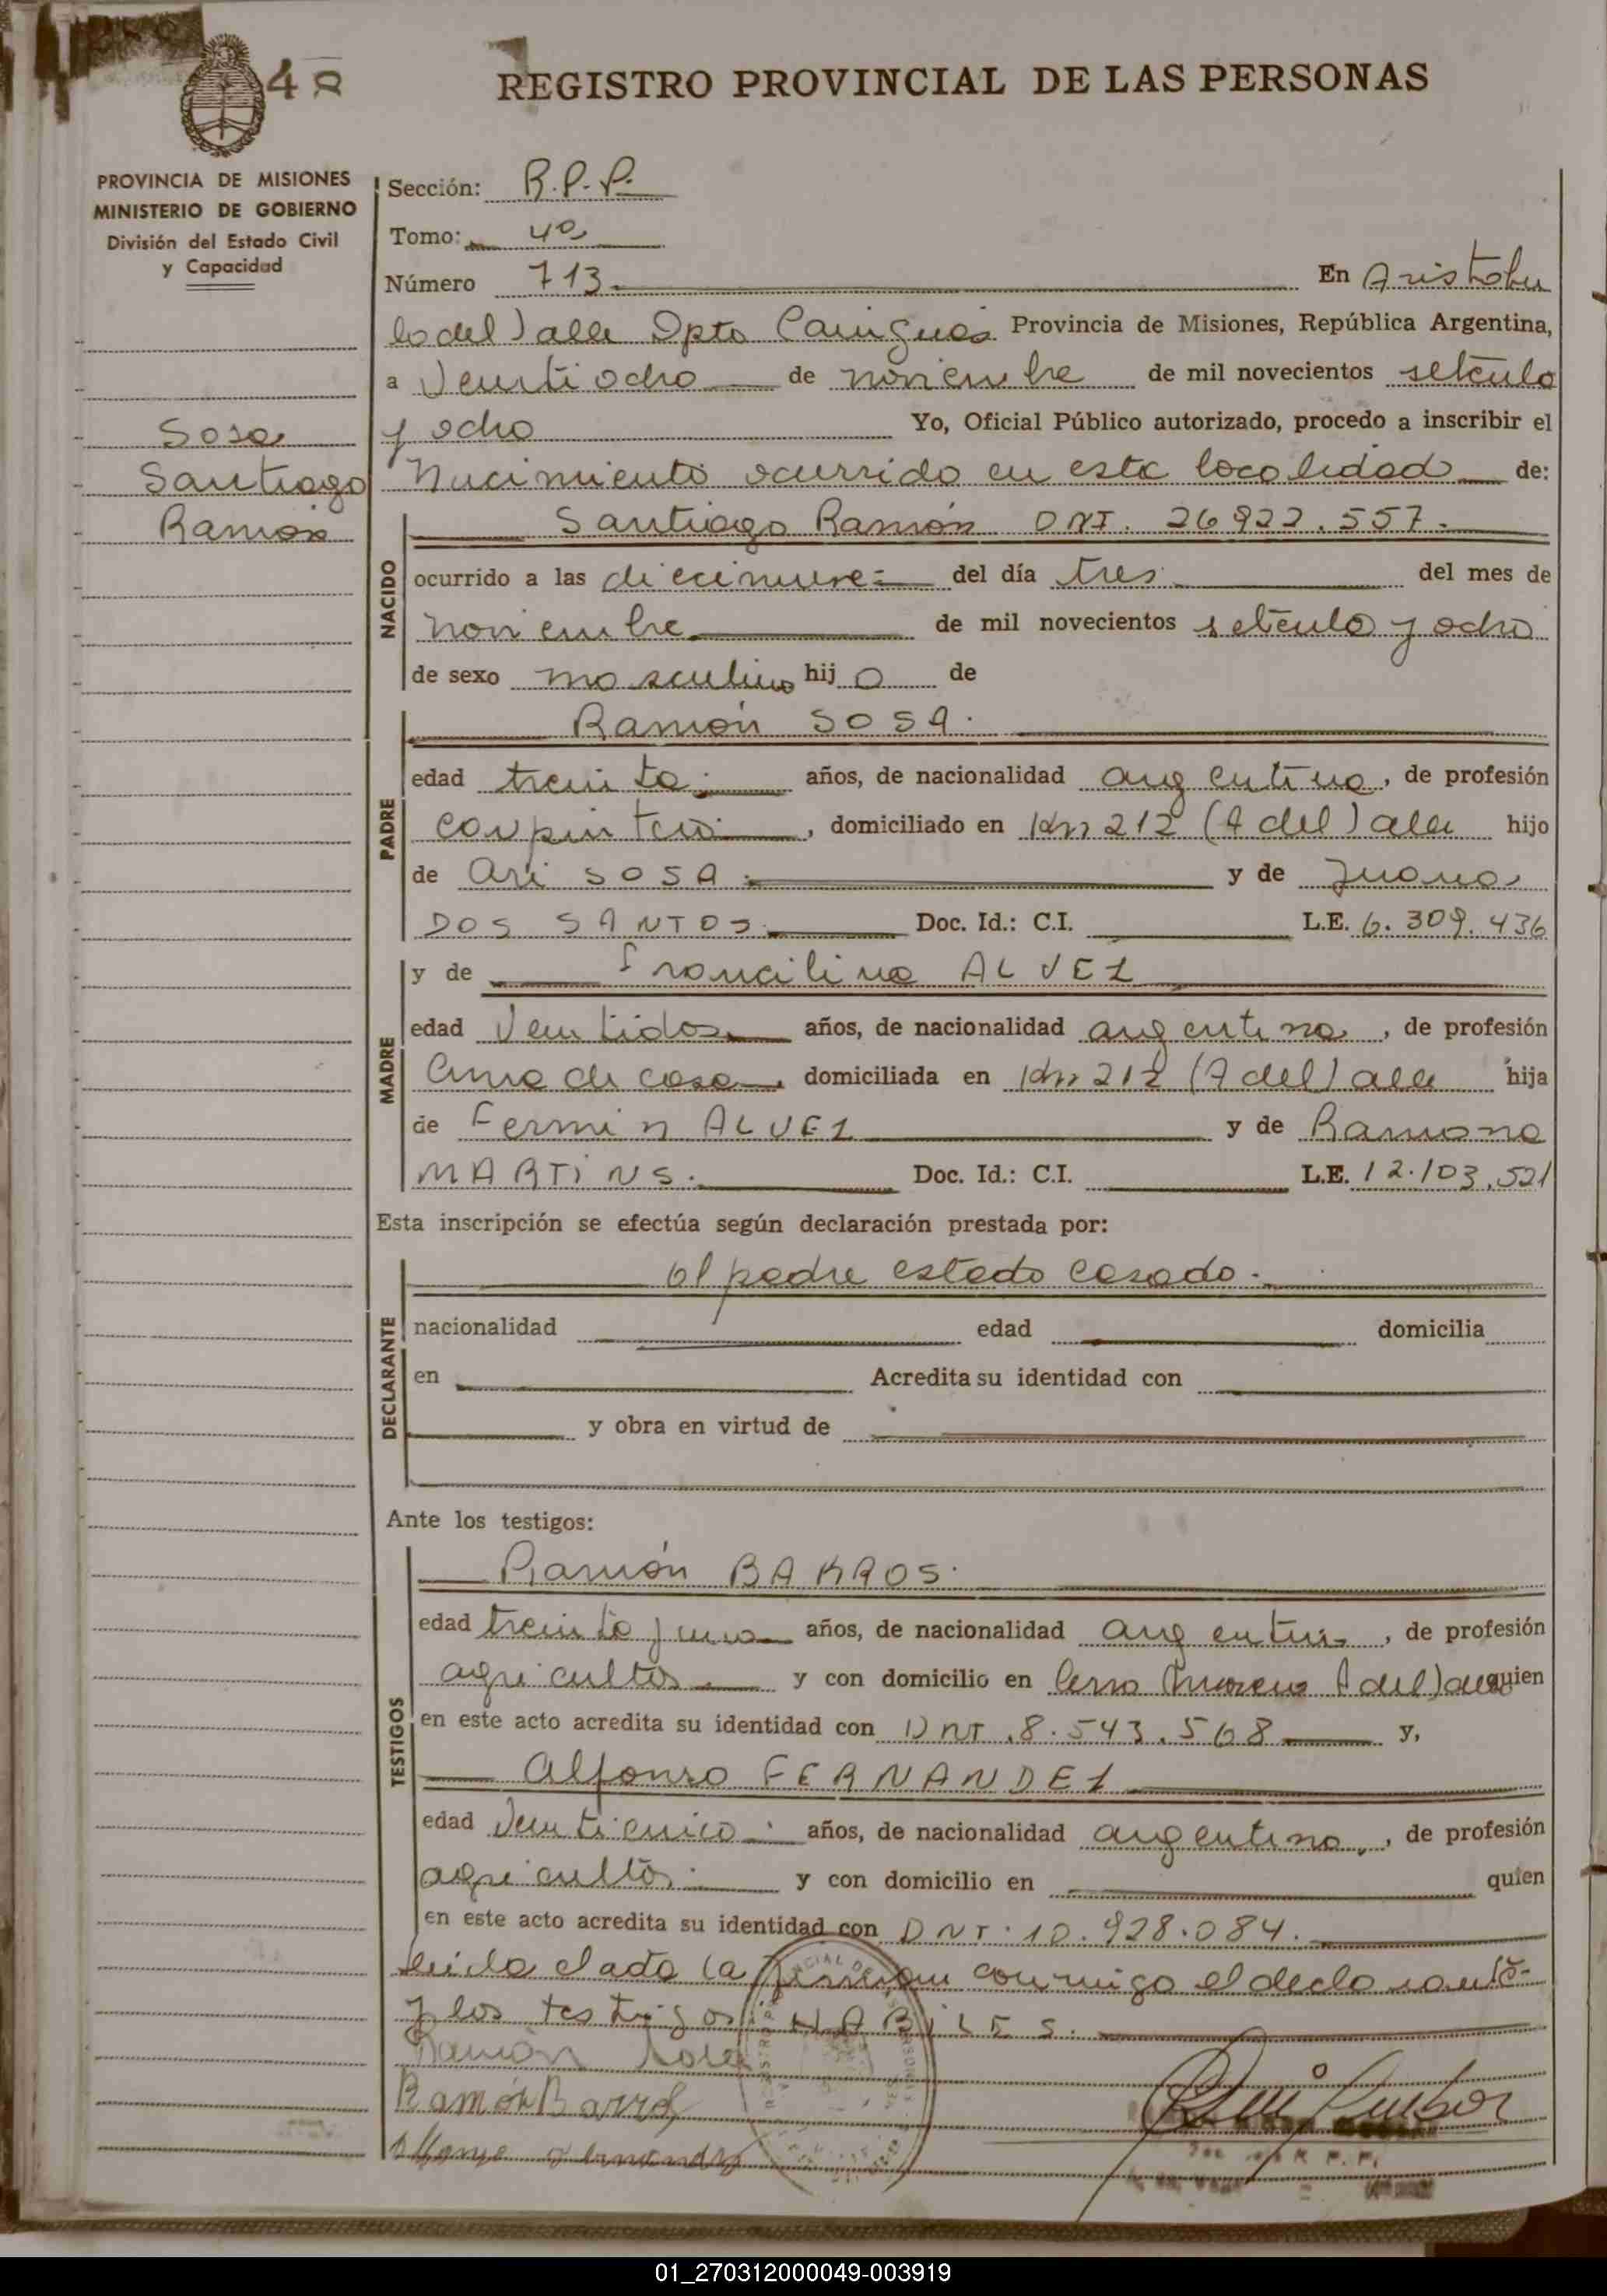 48
REGISTRO PROVINCIAL DE LAS PERSONAS
PROVINCIA DE MISIONES
MINISTERIO DE GOBIERNO
División del Estado Civil
y Capacidad
Sosa
Santiago
Ramón
Sección: R.P.P.
Tomo: 4º
Número 713 En Aristobu
lo del Valle Dpto Cainguás Provincia de Misiones, República Argentina,
a Veintiocho de noviembre de mil novecientos setenta
y ocho Yo, Oficial Público autorizado, procedo a inscribir el
Nacimiento ocurrido en esta localidad de:
NACIDO
Santiago Ramón DNI. 26.922.557.
ocurrido a las diecinueve del día tres del mes de
noviembre de mil novecientos setenta y ocho
de sexo masculino hij o de
PADRE
Ramón SOSA.
edad treinta años, de nacionalidad argentina, de profesión
carpintero, domiciliado en Km 212 (A del Valle hijo
de Ari SOSA y de Juana
DOS SANTOS Doc. Id.: C.I. L.E. 6.309.436
MADRE
y de Francilina ALVEZ
edad Veintidos años, de nacionalidad argentina, de profesión
Ama de casa, domiciliada en Km 212 (A del Valle hija
de Fermin ALVEZ y de Ramona
MARTINS. Doc. Id.: C.I. L.E. 12.103.521
Esta inscripción se efectúa según declaración prestada por:
DECLARANTE
el padre estado casado.
nacionalidad edad domicilia
en Acredita su identidad con
y obra en virtud de
Ante los testigos:
TESTIGOS
Ramón BARROS.
edad treinta y uno años, de nacionalidad argentina, de profesión
agricultor y con domicilio en Cerro Moreno A del Valle quien
en este acto acredita su identidad con DNI. 8.543.568 y,
Alfonso FERNANDEZ
edad Veinticinco años, de nacionalidad argentina, de profesión
agricultor y con domicilio en quien
en este acto acredita su identidad con DNI. 10.928.084.
Leida el acta la firman conmigo el declarante
y los testigos HABILES.
Ramón Sosa
Ramón Barros
01_270312000049-003919